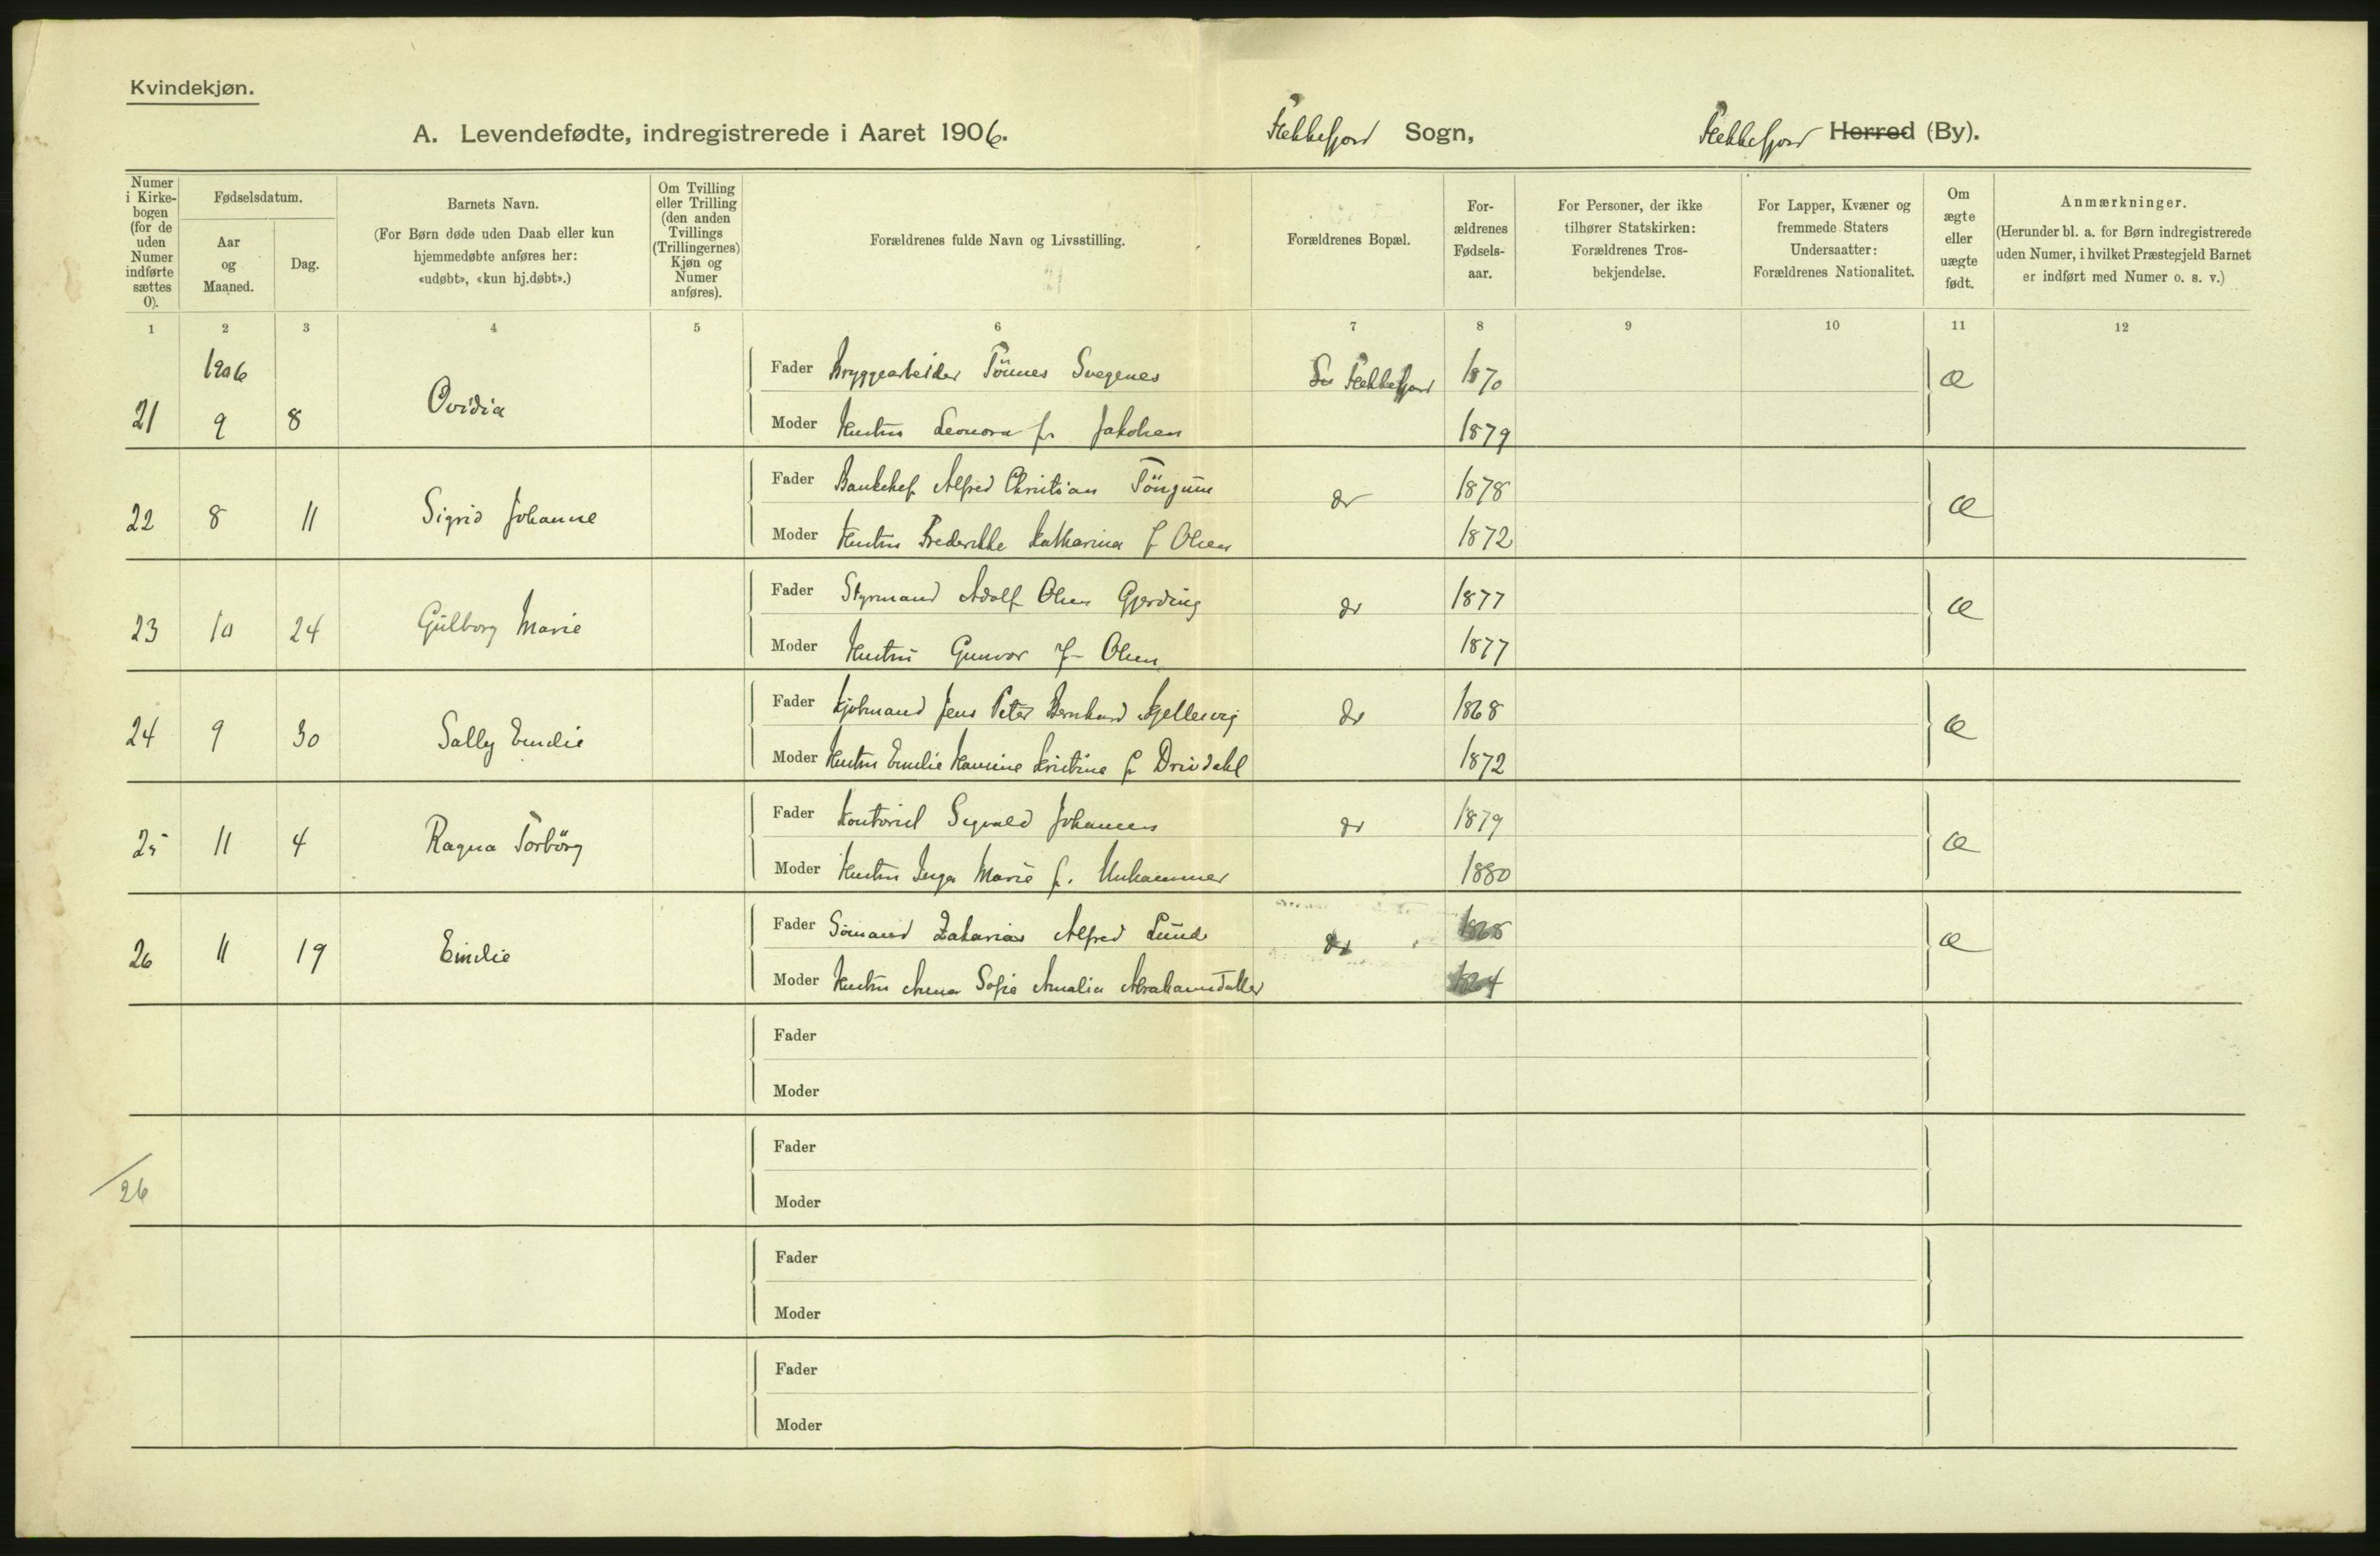 Kvindekjøn.
A. Levendefødte, indregistrerede i Aaret 1906. Flekkefjord Sogn, Flekkefjord Herred (By).
Numer i Kirke-bogen (for de uden Numer indførte sættes 0).
Fødselsdatum.
Aar og Maaned.
Dag.
Barnets Navn.
(For Børn døde uden Daab eller kun
hjemmedøbte anføres her:
«udøbt», «kun hj.døbt».)
Om Tvilling
eller Trilling
(den anden
Tvillings
(Trillingernes)
Kjøn og
Numer
anføres).
Forældrenes fulde Navn og Livsstilling.
Forældrenes Bopæl.
For-
ældrenes
Fødsels-
aar.
For Personer, der ikke
tilhører Statskirken:
Forældrenes Tros-
bekjendelse.
For Lapper, Kvæner og
fremmede Staters
Undersaatter:
Forældrenes Nationalitet.
Om
ægte
eller
uægte
født.
Anmærkninger.
(Herunder bl. a. for Børn indregistrerede
uden Numer, i hvilket Præstegjeld Barnet
er indført med Numer o. s. v.)
1 2 3 4 5 6 7 8 9 10 11 12
1906
21 9 8 Ovidia
Fader Bryggearbeider Tönnes Svegenes Flekkefjord 1870 Æ
Moder Hustru Leonora f. Jakobsen 1879
22 8 11 Sigrid Johanne
Fader Alfred Christian do 1878 Æ
Moder Hustru Frederikke Katharina f Olsen 1872
23 10 24 Gülborg Marie
Fader Styrmand Adolf Olsen Gjerding do 1877 Æ
Moder Hustru Gunvor f Olsen 1877
24 9 30 Sally Emilie
Fader Kjöbmand Jens Peter Bernhard do 1868 Æ
Moder Hustru Emilie Kristine f Drivdahl 1872
25 11 4 Ragna Torbörg
Fader Kontorist Sigvald Johansen do 1879 Æ
Moder Hustru Inga Marie f. Unhammer 1880
26 11 19 Emilie
Fader Sömand Zakarias Alfred Lund do 1868 Æ
Moder Hustru Anna Sofie Amalia Abrahamsdatter 1864
Fader
Moder
Fader
26
Moder
Fader
Moder
Fader
Moder